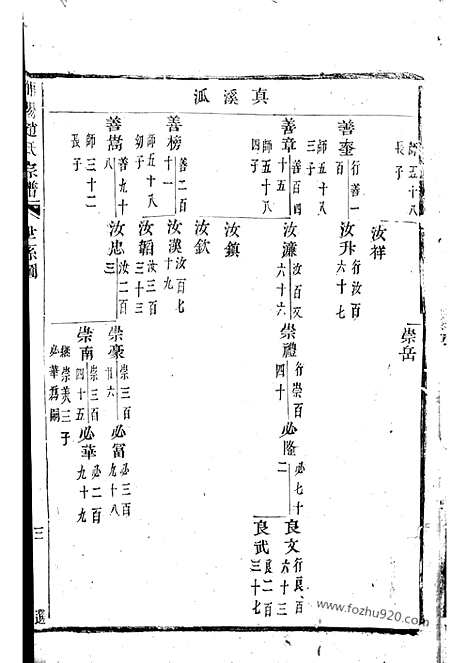 真溪泒
師五十八
長子
汝祥
崇岳
善奎 行善一百
三子
汝升 行汝百六十七
善章 善百四十五
師五十八
四子
汝濂 汝百又六十六
崇禮 行崇百四十
必隆 必七十二
良文 行良百六十三
良武 良二百三十七
汝鎮
汝欽
善榜 善二百十一
師五十八
幼子
汝漢 汝百七十九
汝韜 汝三百三十三
善嵩 善九十
師三十二
長子
汝忠 汝二百三
崇豪 崇三百廿六
必富 必三百九十八
崇南 崇三百四十五
繼崇美三子
必華為嗣
必華 必二百九十九
趙氏宗譜
世系圖
三
www.fozhu920.com